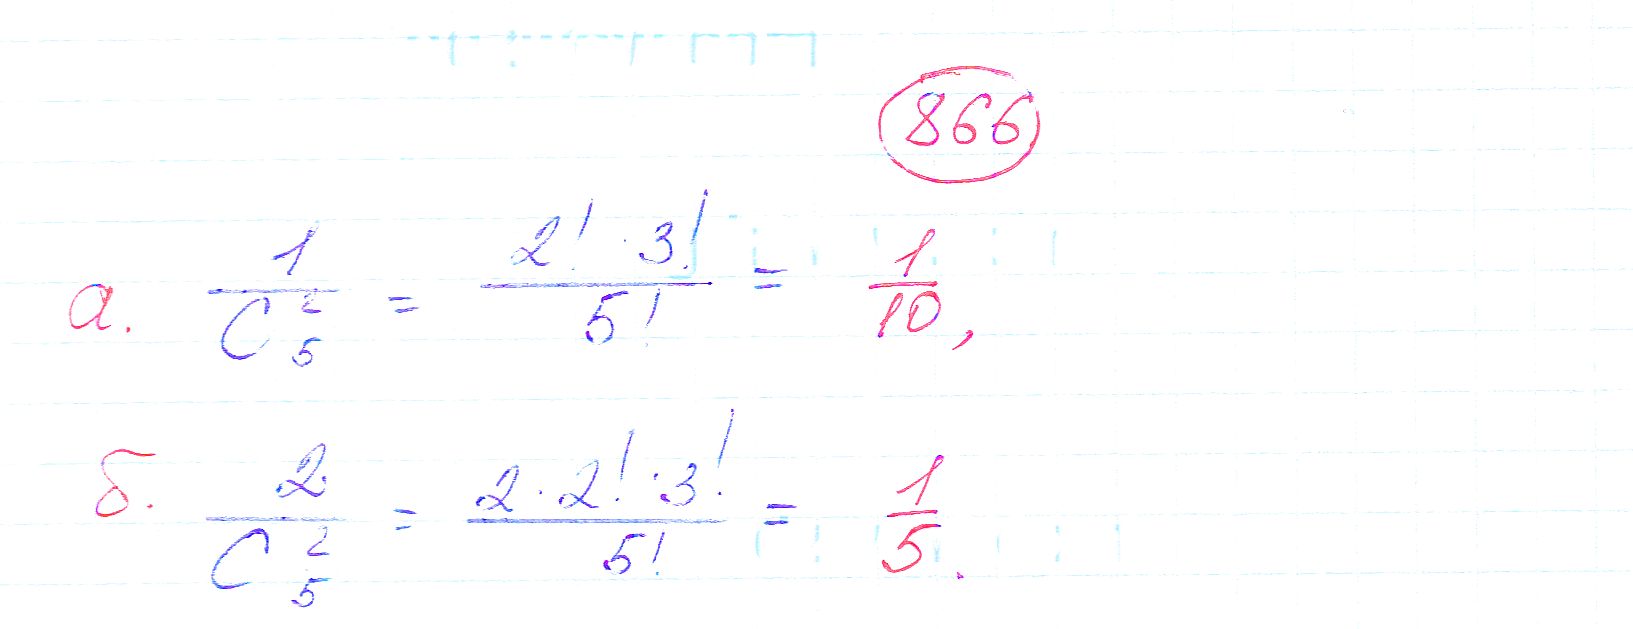 866
а. 1/C₅² = 2! · 3!/5! = 1/10,
б. 2/C₅² = 2 · 2! · 3!/5! = 1/5.